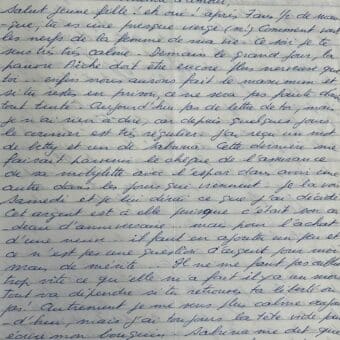 d'amour.
Salut jeune fille! et oui! après 7 ans, je
que, tu es une presque vierge (mi) Comment vont
les nerfs de la femme de ma vie. Ce soir je te
sens très très calme. Demain le grand jour, la
pauvre Biche doit être encore plus nerveux que
toi. enfin nous aurons fait le maximum et
si tu restes en prison, ce ne sera pas faute d'avoir
tout tenté. Aujourd'hui pas de lettre de toi, mais
je n'ai rien à dire, car depuis quelques jours
le courrier est très régulier. J'ai reçu un mot
de Letty et un de Sabrina. Cette dernière me
faisait parvenir le chèque de l'assurance
de sa mobylette avec l'espoir d'en avoir une
autre dans les jours qui viennent. Je la vois
samedi et je lui dirai ce que j'ai décidé
Cet argent est à elle puisque c'était son ca
deau d'anniversaire mais pour l'achat
d'une neuve il faut en ajouter un peu et
ce n'est pas une question d'argent pour moi
mais de mérite. Il ne faut pas oublier
trop vite ce qu'elle m'a fait il y a un mois
Tout va dépendre si tu retrouves ta liberté ou
pas! Autrement je me sens plus calme aujour
d'hui, mais j'ai toujours la tête vide pour
écrire mon bouquin. Sabrina me dit que